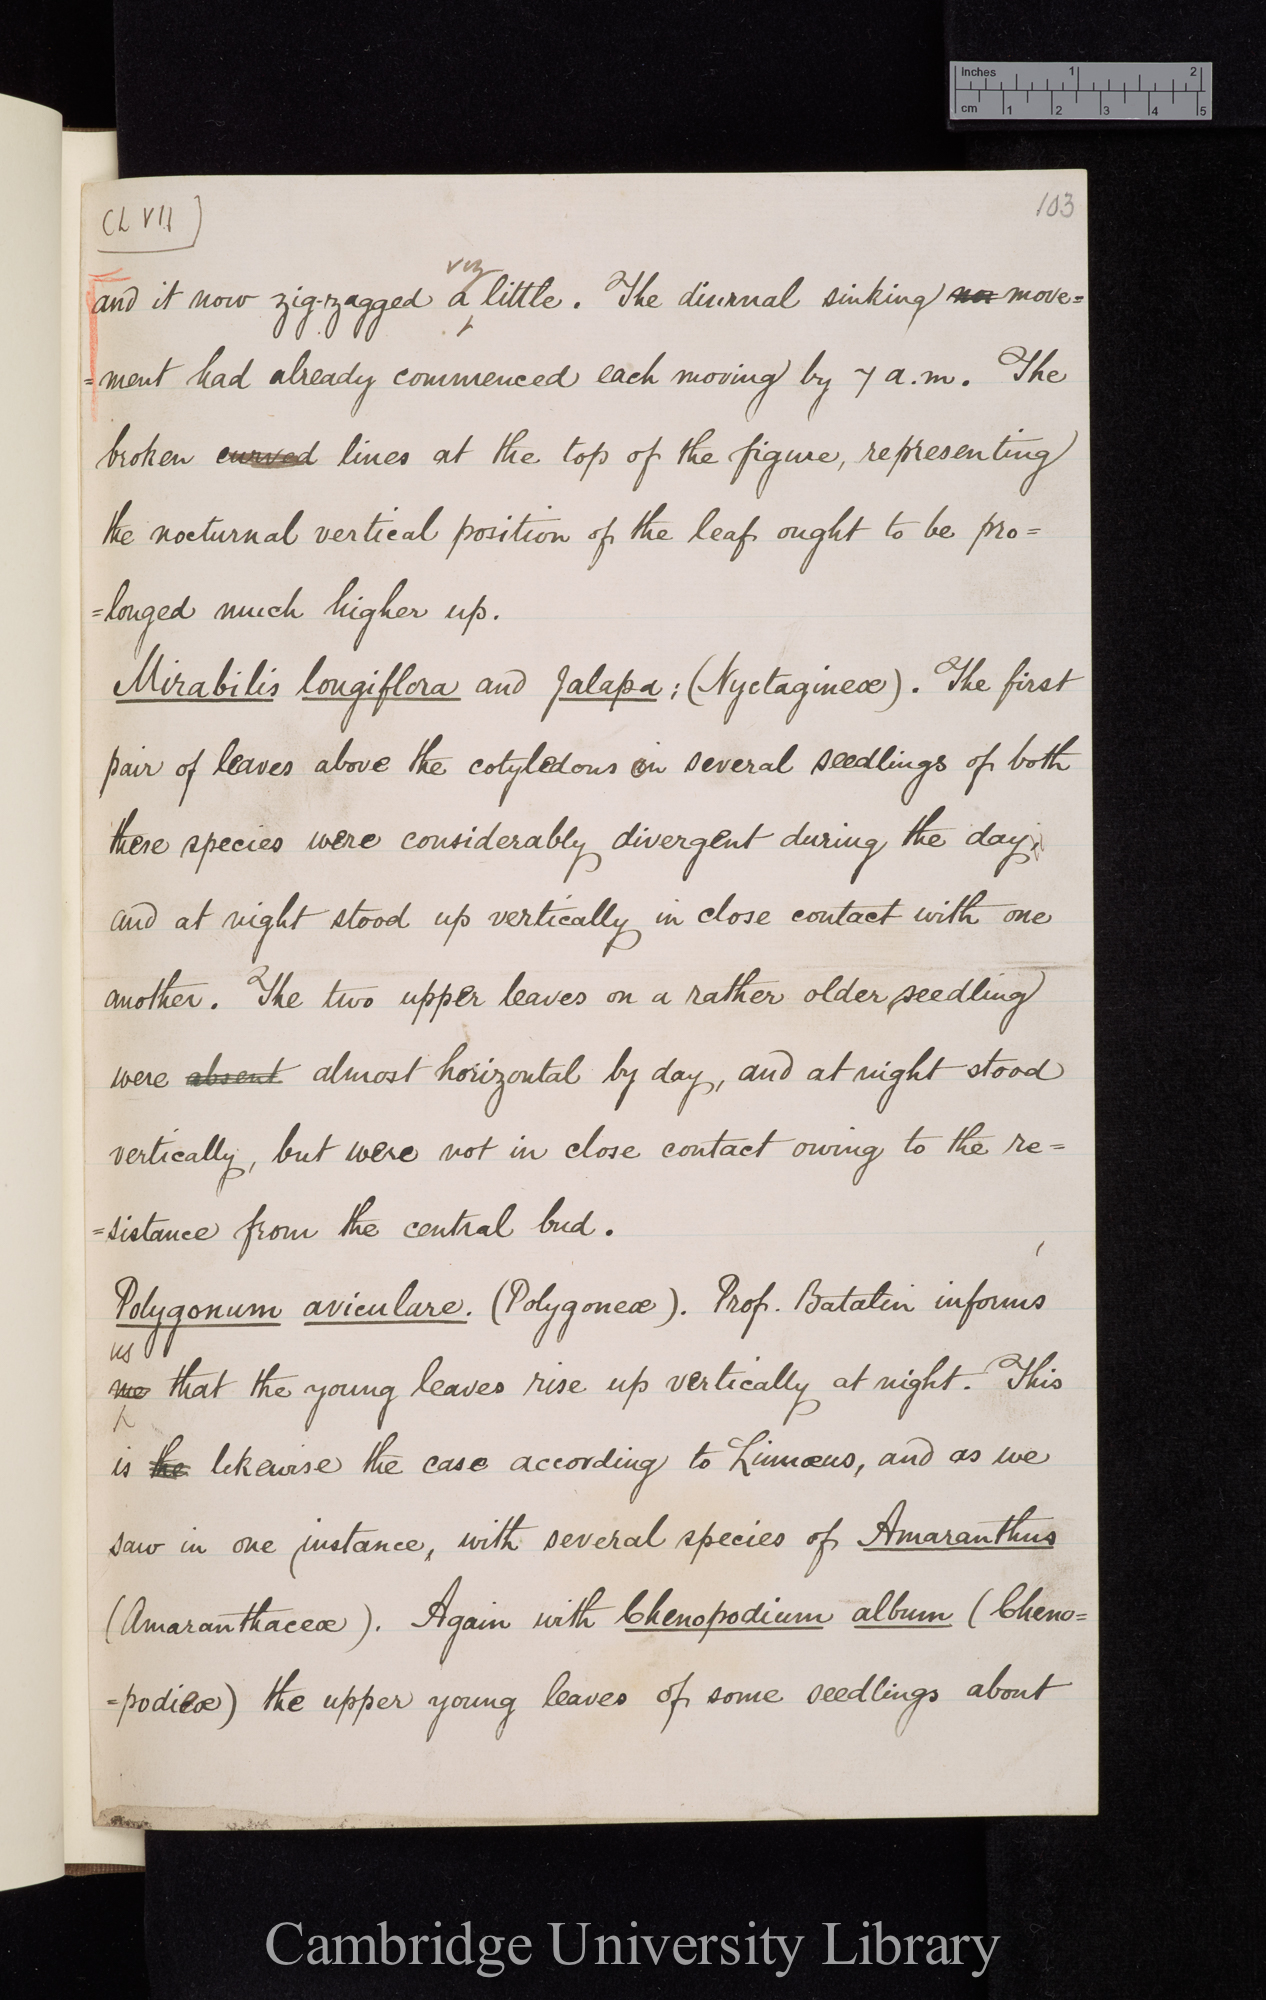 Inches 1 2
cm 1 2 3 4 5
(L VII)
103
viz
and it now zig-zagged a little. The diurnal sinking no move=
=ment had already commenced each moving by 7 a.m. The
broken curved lines at the top of the figure, representing
the nocturnal vertical position of the leaf ought to be pro=
=longed much higher up.
Mirabilis longiflora and Jalapa; (Nyctagineæ). The first
pair of leaves above the cotyledons in several seedlings of both
these species were considerably divergent during the day,
and at night stood up vertically in close contact with one
another. The two upper leaves on a rather older seedling
were absent almost horizontal by day, and at night stood
vertically, but were not in close contact owing to the re=
=sistance from the central bud.
Polygonum aviculare. (Polygoneæ). Prof. Batalin informs
us
me that the young leaves rise up vertically at night. This
is the likewise the case according to Linnæus, and as we
saw in one instance, with several species of Amaranthus
(Amaranthaceæ). Again with Chenopodium album (Cheno=
=podieæ) the upper young leaves of some seedlings about
Cambridge University Library